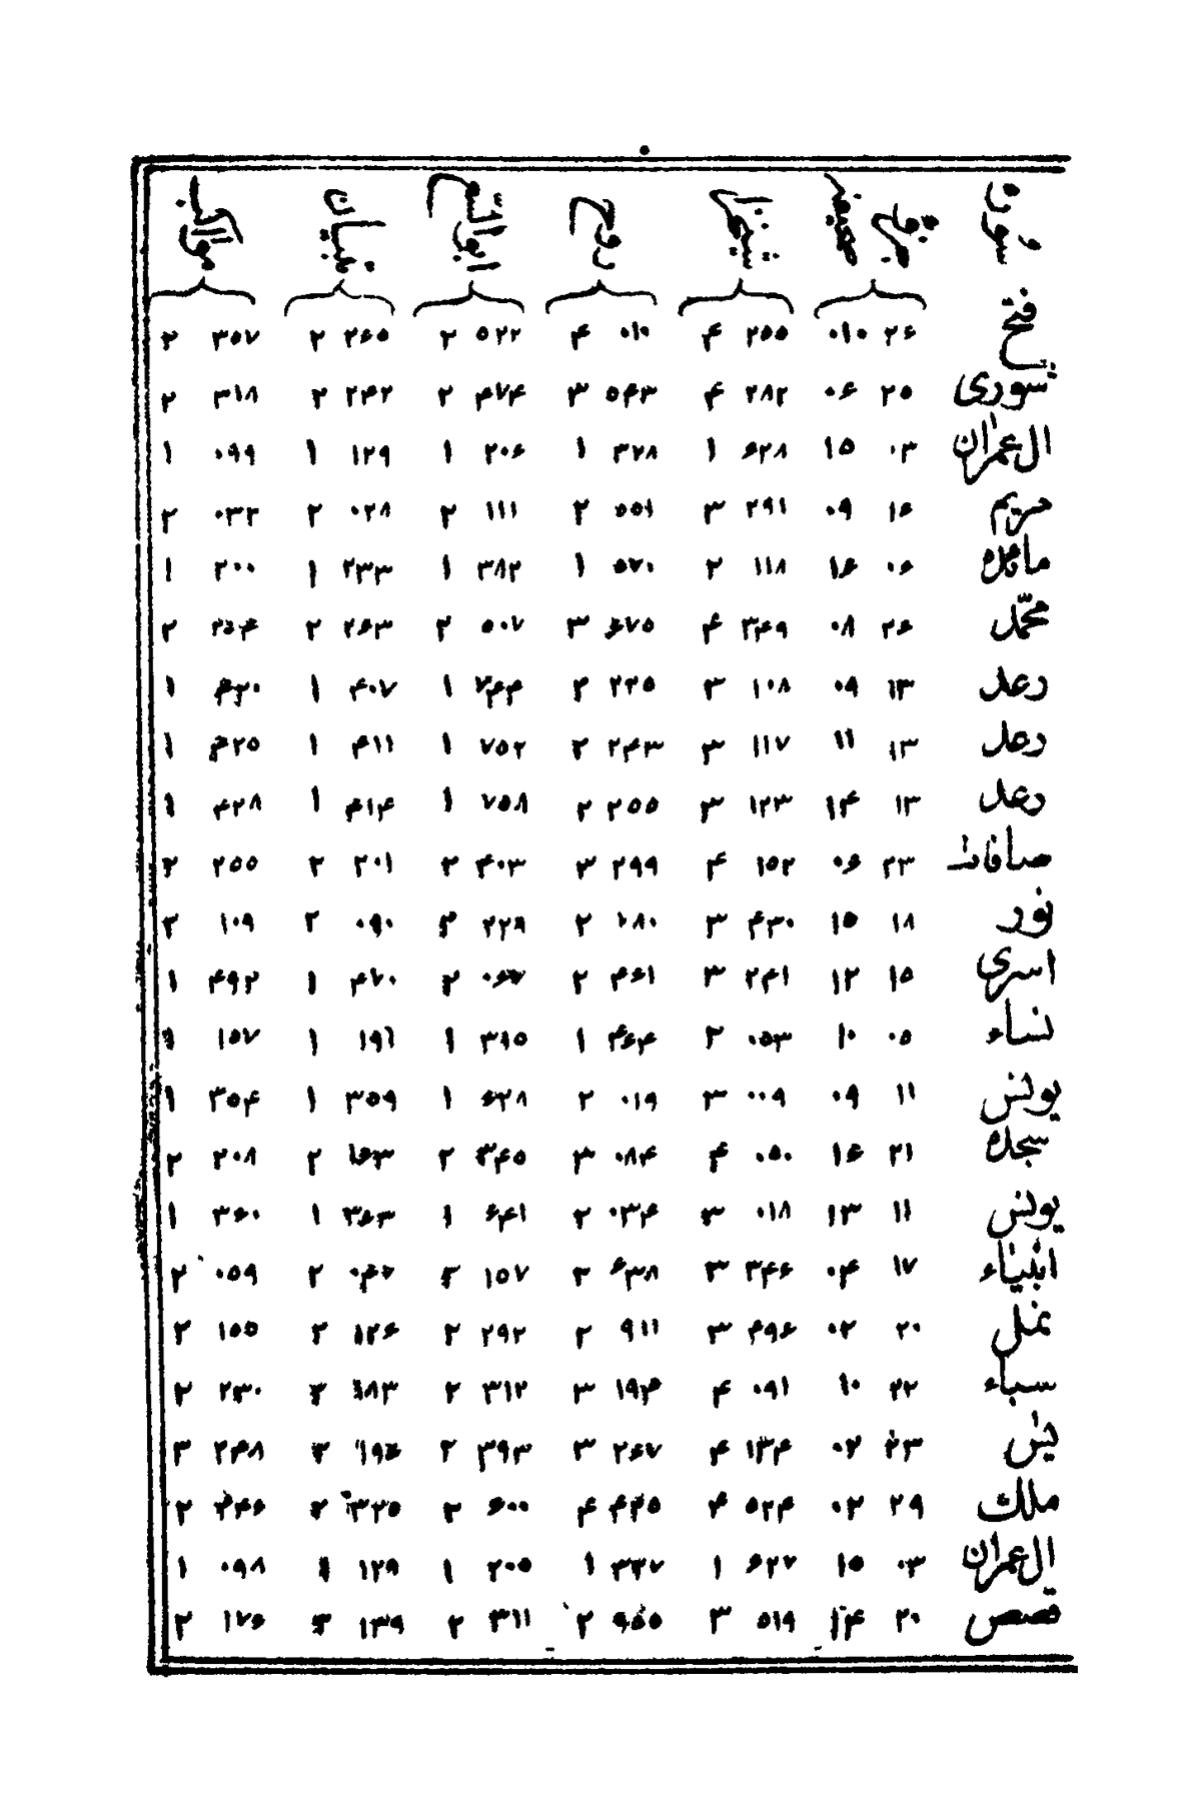 سوره جزء صفحه شیخ زاده روح ابوالسعود تبیان مواکب
فتح ۲۶ ۰۱۰ ۲۵۵ ۴ ۰۱۰ ۴ ۵۲۲ ۲ ۲۶۵ ۲ ۳۵۷ ۲
شوری ۲۵ ۰۶ ۲۸۲ ۴ ۵۴۳ ۳ ۴۷۴ ۲ ۲۴۲ ۲ ۳۱۸ ۲
ال عمران ۰۳ ۱۵ ۶۲۸ ۱ ۳۲۸ ۱ ۲۰۶ ۱ ۱۲۹ ۱ ۰۹۹ ۱
مریم ۱۶ ۰۹ ۲۹۱ ۳ ۵۵۱ ۲ ۱۱۱ ۲ ۰۲۸ ۲ ۰۳۲ ۲
مائده ۰۶ ۱۶ ۱۱۸ ۲ ۵۷۰ ۱ ۳۸۲ ۱ ۲۳۳ ۱ ۲۰۰ ۱
محمّد ۲۶ ۰۸ ۳۴۹ ۴ ۶۷۵ ۳ ۵۰۷ ۲ ۲۶۳ ۲ ۲
رعد ۱۳ ۰۹ ۱۰۸ ۳ ۲۲۵ ۲ ۷۴۴ ۱ ۴۰۷ ۱ ۴۲۰ ۱
رعد ۱۳ ۱۱ ۱۱۷ ۳ ۲۴۳ ۲ ۷۵۲ ۱ ۴۱۱ ۱ ۴۲۵ ۱
رعد ۱۳ ۱۴ ۱۲۳ ۳ ۲۵۵ ۲ ۷۵۸ ۱ ۴۱۴ ۱ ۴۲۸ ۱
صافات ۲۳ ۰۶ ۱۵۲ ۴ ۲۹۹ ۳ ۴۰۳ ۲ ۲۰۱ ۲ ۲۵۵ ۲
نور ۱۸ ۱۵ ۴۳۰ ۳ ۲ ۲۲۹ ۲ ۰۹۰ ۲ ۱۰۹ ۲
اسری ۱۵ ۱۲ ۲۴۱ ۳ ۴۶۱ ۲ ۲ ۴۷۰ ۱ ۴۹۲ ۱
نساء ۰۵ ۱۰ ۰۵۳ ۲ ۴۶۴ ۱ ۳۱۵ ۱ ۱۹۱ ۱ ۱۵۷ ۱
یونس ۱۱ ۰۹ ۰۰۹ ۳ ۰۱۹ ۲ ۶۲۸ ۱ ۳۵۹ ۱ ۳۵۴ ۱
سجده ۲۱ ۱۶ ۰۵۰ ۴ ۰۸۴ ۳ ۳۴۵ ۲ ۱۶۳ ۲ ۲۰۸ ۲
یونس ۱۱ ۱۳ ۰۱۸ ۳ ۰۳۴ ۲ ۶۴۱ ۱ ۳۶۳ ۱ ۳۶۰ ۱
انبیاء ۱۷ ۰۴ ۳۴۶ ۳ ۶۳۸ ۲ ۱۵۷ ۲ ۲ ۰۵۹ ۲
نمل ۲۰ ۰۲ ۴۹۶ ۳ ۹۱۱ ۲ ۲۹۲ ۲ ۱۲۶ ۲ ۱۵۵ ۲
سباء ۲۲ ۱۰ ۰۹۱ ۴ ۱۹۴ ۳ ۳۱۲ ۲ ۱۸۳ ۲ ۲۳۰ ۲
یس ۲۳ ۰۲ ۱۳۴ ۴ ۲۶۷ ۳ ۳۹۳ ۲ ۱۹۶ ۲ ۲۴۸ ۲
ملك ۲۹ ۰۲ ۵۲۴ ۴ ۴۴۵ ۴ ۶۰۰ ۲ ۳۲۵ ۲ ۴۴۶ ۲
ال عمران ۰۳ ۱۵ ۶۲۷ ۱ ۳۲۷ ۱ ۲۰۵ ۱ ۱۲۹ ۱ ۰۹۸ ۱
قصص ۲۰ ۱۴ ۵۱۹ ۳ ۹۵۵ ۲ ۳۱۱ ۲ ۱۳۹ ۲ ۱۷۶ ۲